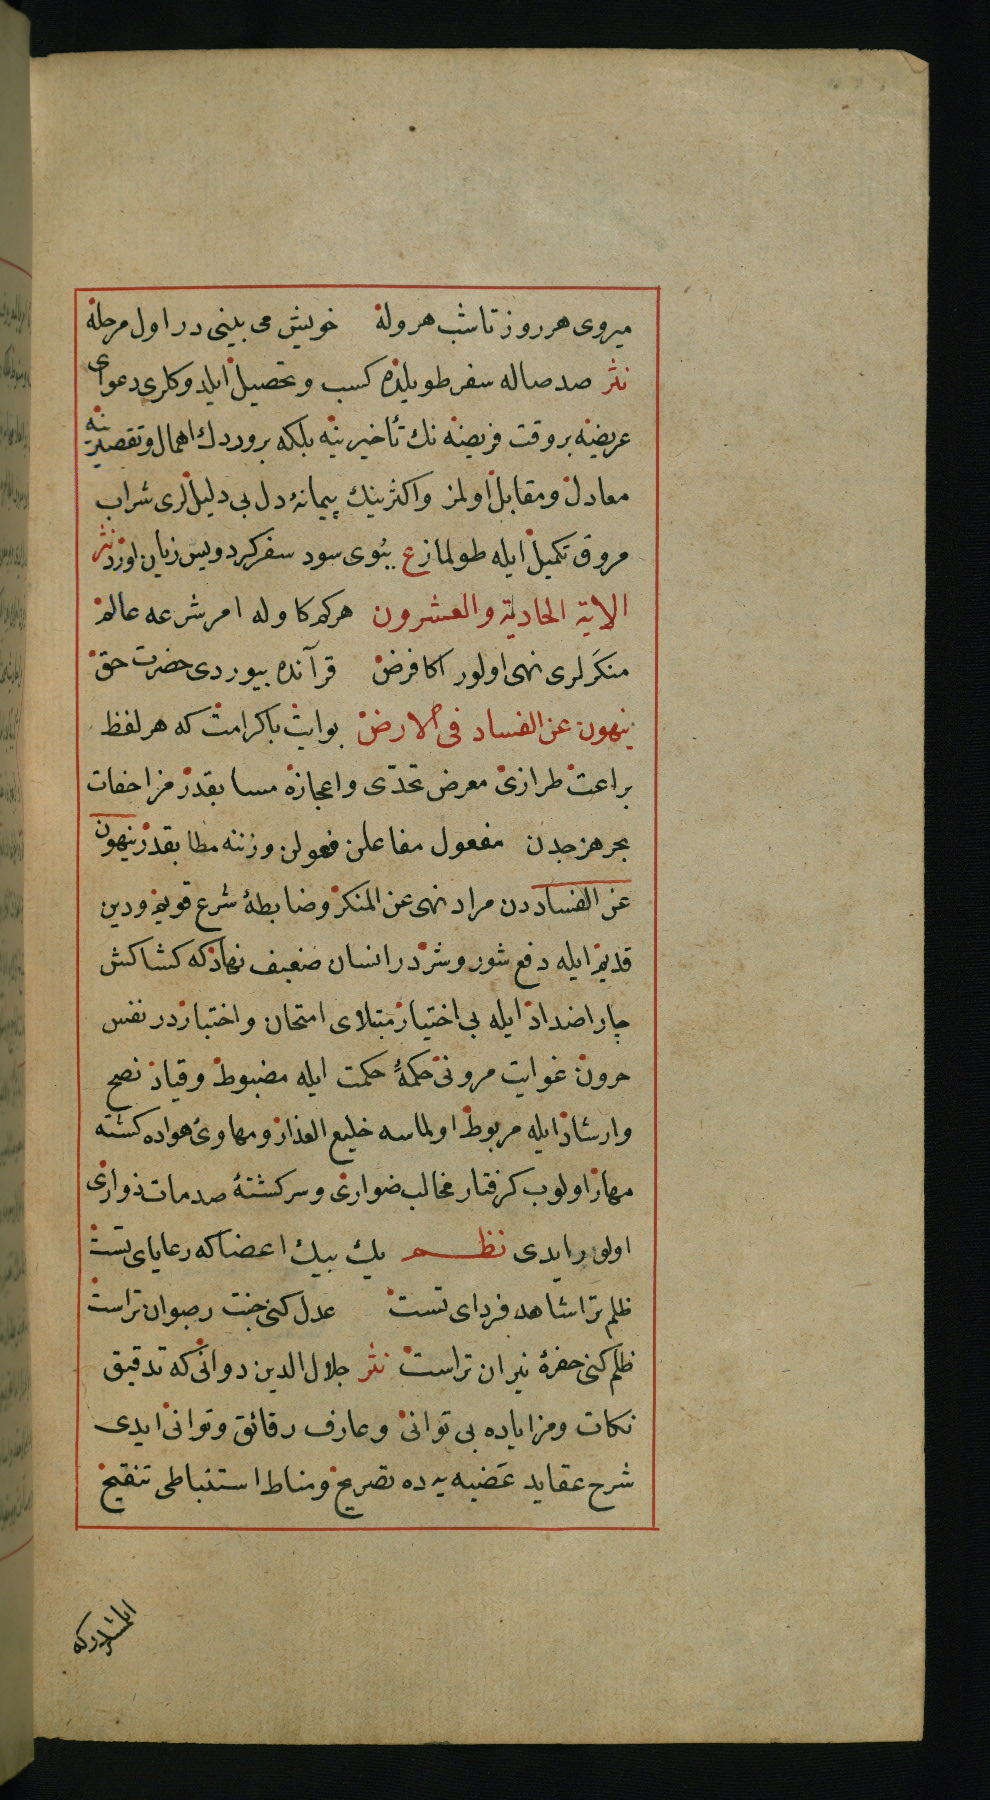 میروی هر روز تا شب هروله خویش می بینی در اول مرحله
نثر صد صاله سفر طویلده کسب و تحصیل ایلدوکلری دعوای
عریضه بر وقت فریضه نك تأخیرینه بلکه بر وردك اهمال و تقصیرینه
معادل و مقابل اولمز واکثرینك پیمانهٔ دل بی دلیللری شراب
مروق تکمیل ایله طولماز ع بئوی سود سفر کرد و بس زیان اورد نثر
الایة الحادیة والعشرون هرکم کا وله امر شرعه عالم
منکرلری نهی اولور اکا فرض قرآنده بیوردی حضرت حق
ینهون عن الفساد فی الارض بو ایت با کرامت که هر لفظ
براعت طرازی معرض تحدّی و اعجازه مسابقدر مزاحفات
بحر هزجدن مفعول مفاعلن فعولن وزننه مطابقدر ینهون
عن الفساددن مراد نهی عن المنکر وضابطهٔ شرع قویم و دین
قدیم ایله دفع شور و شردر انسان ضعیف نهاد که کشاکش
چار اضداد ایله بی اختیار مبتلای امتحان و اختباردر نفس
حرون غوایت مرونی حکمهٔ حکمت ایله مضبوط و قیاد نصح
وارشاد ایله مربوط اولماسه خلیع العذار و مهاوئ هواده کشته
مهار اولوب کرفتار مخالب ضواری و سرکشتهٔ صدمات ذواری
اولورایدی نظم یك بیك اعضا که رعایای تست
ظلم ترا شاهد فردای تست عدل کنی جنت رضوان تراست
ظلم کنی حفرهٔ نیران تراست نثر جلال الدین دوانی که تدقیق
نکات و مزایاده بی توانی و عارف رقائق و توانی ایدی
شرح عقاید عضدیه ده تصریح و مناط استنباطی تنقیح
ایلمشدر که